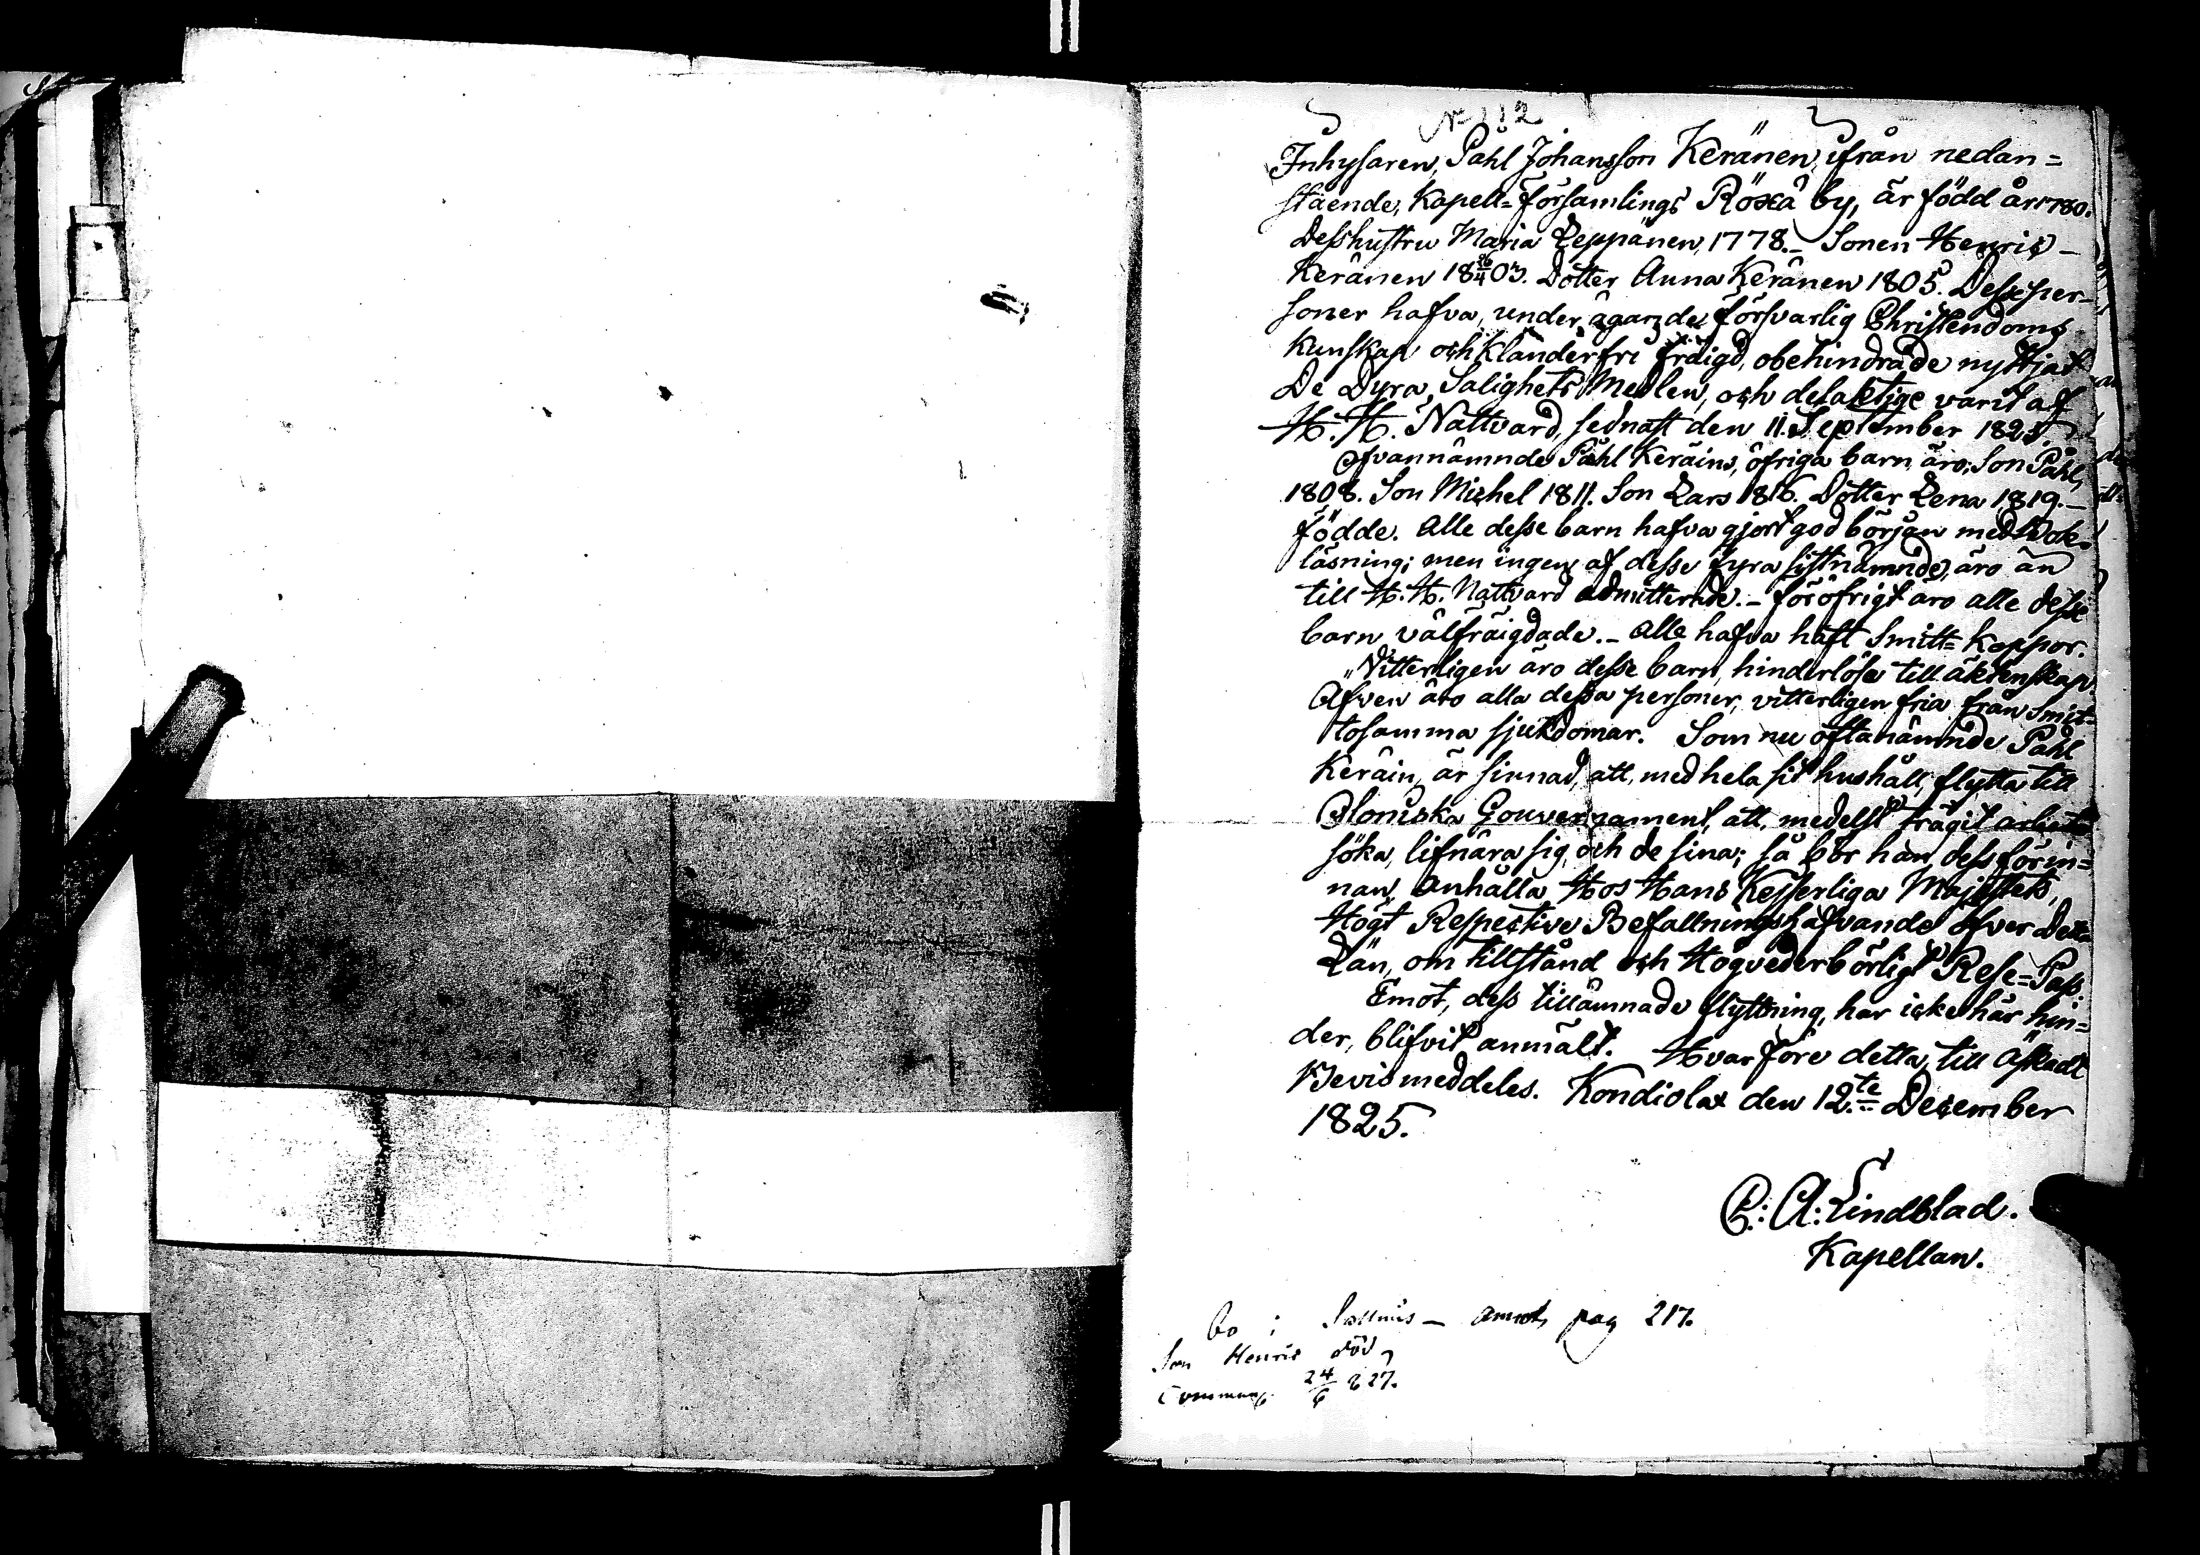 N: 112
Inhysaren, Påhl Johansson Keränen, ifrån nedan=
stående, Kapell=Församlings Röxä by, är född år 1780.
Desshustru Maria Leppänen, 1778. _ Sonen Henric _
Keränen 18 26/4 03. Dotter Anna Keränen 1805. Desse per-
soner hafva, under ägande försvarlig Christendoms
Kunskap och Klanderfri frägd, obehindrade nyttjat
De Dyra, Salighets Medlen, och delaktige varit af
H. H. Nattvard, sednast den 11. September 1825.
Ofvannämnde Påhl Keräins, öfriga barn äro; Son Påhl,
1808. Son Michel 1811. Son Lars 1816. Dotter Lena 1819. _
födde. Alle desse barn hafva gjort god början med Bok=
läsning; men ingen af desse fyra sistnämnde, äro än
till H. H. Nattvard admitterade. _ Föröfrigt äro alle desse
barn välfräigdade. _ Alle hafva haft Smitt=Koppor.
Vitterligen äro desse barn, hinderlöse till äktenskap.
Äfven äro alla dessa personer, vitterligen fria från Smit=
tosamma sjukdomar. Som nu oftanämnde Påhl
Keräin, är sinnad, att, med hela sit hushåll, flytta till
Oloniska Gouvernament, att, medelst trägit arbete
söka, lifnära sig, och de sina; så bör han, dess förin=
nan, anhålla Hos Hans Kejserliga Majestets,
Högt Respective Befallningshafvande öfver Detta
Län, om tillstånd och Högvederbörligt Rese=Pass.
Emot, dess tillämnade flyttning, har icke här hin=
der, blifvit anmält. Hvarföre detta, till äskadt
Bevis meddeles. Kondiolax den 12.te December
1825.
C: A: Lindblad.
Kapellan.
bo i Sallmis _ annot. pag 217.
Son Henric död
24/6 827.